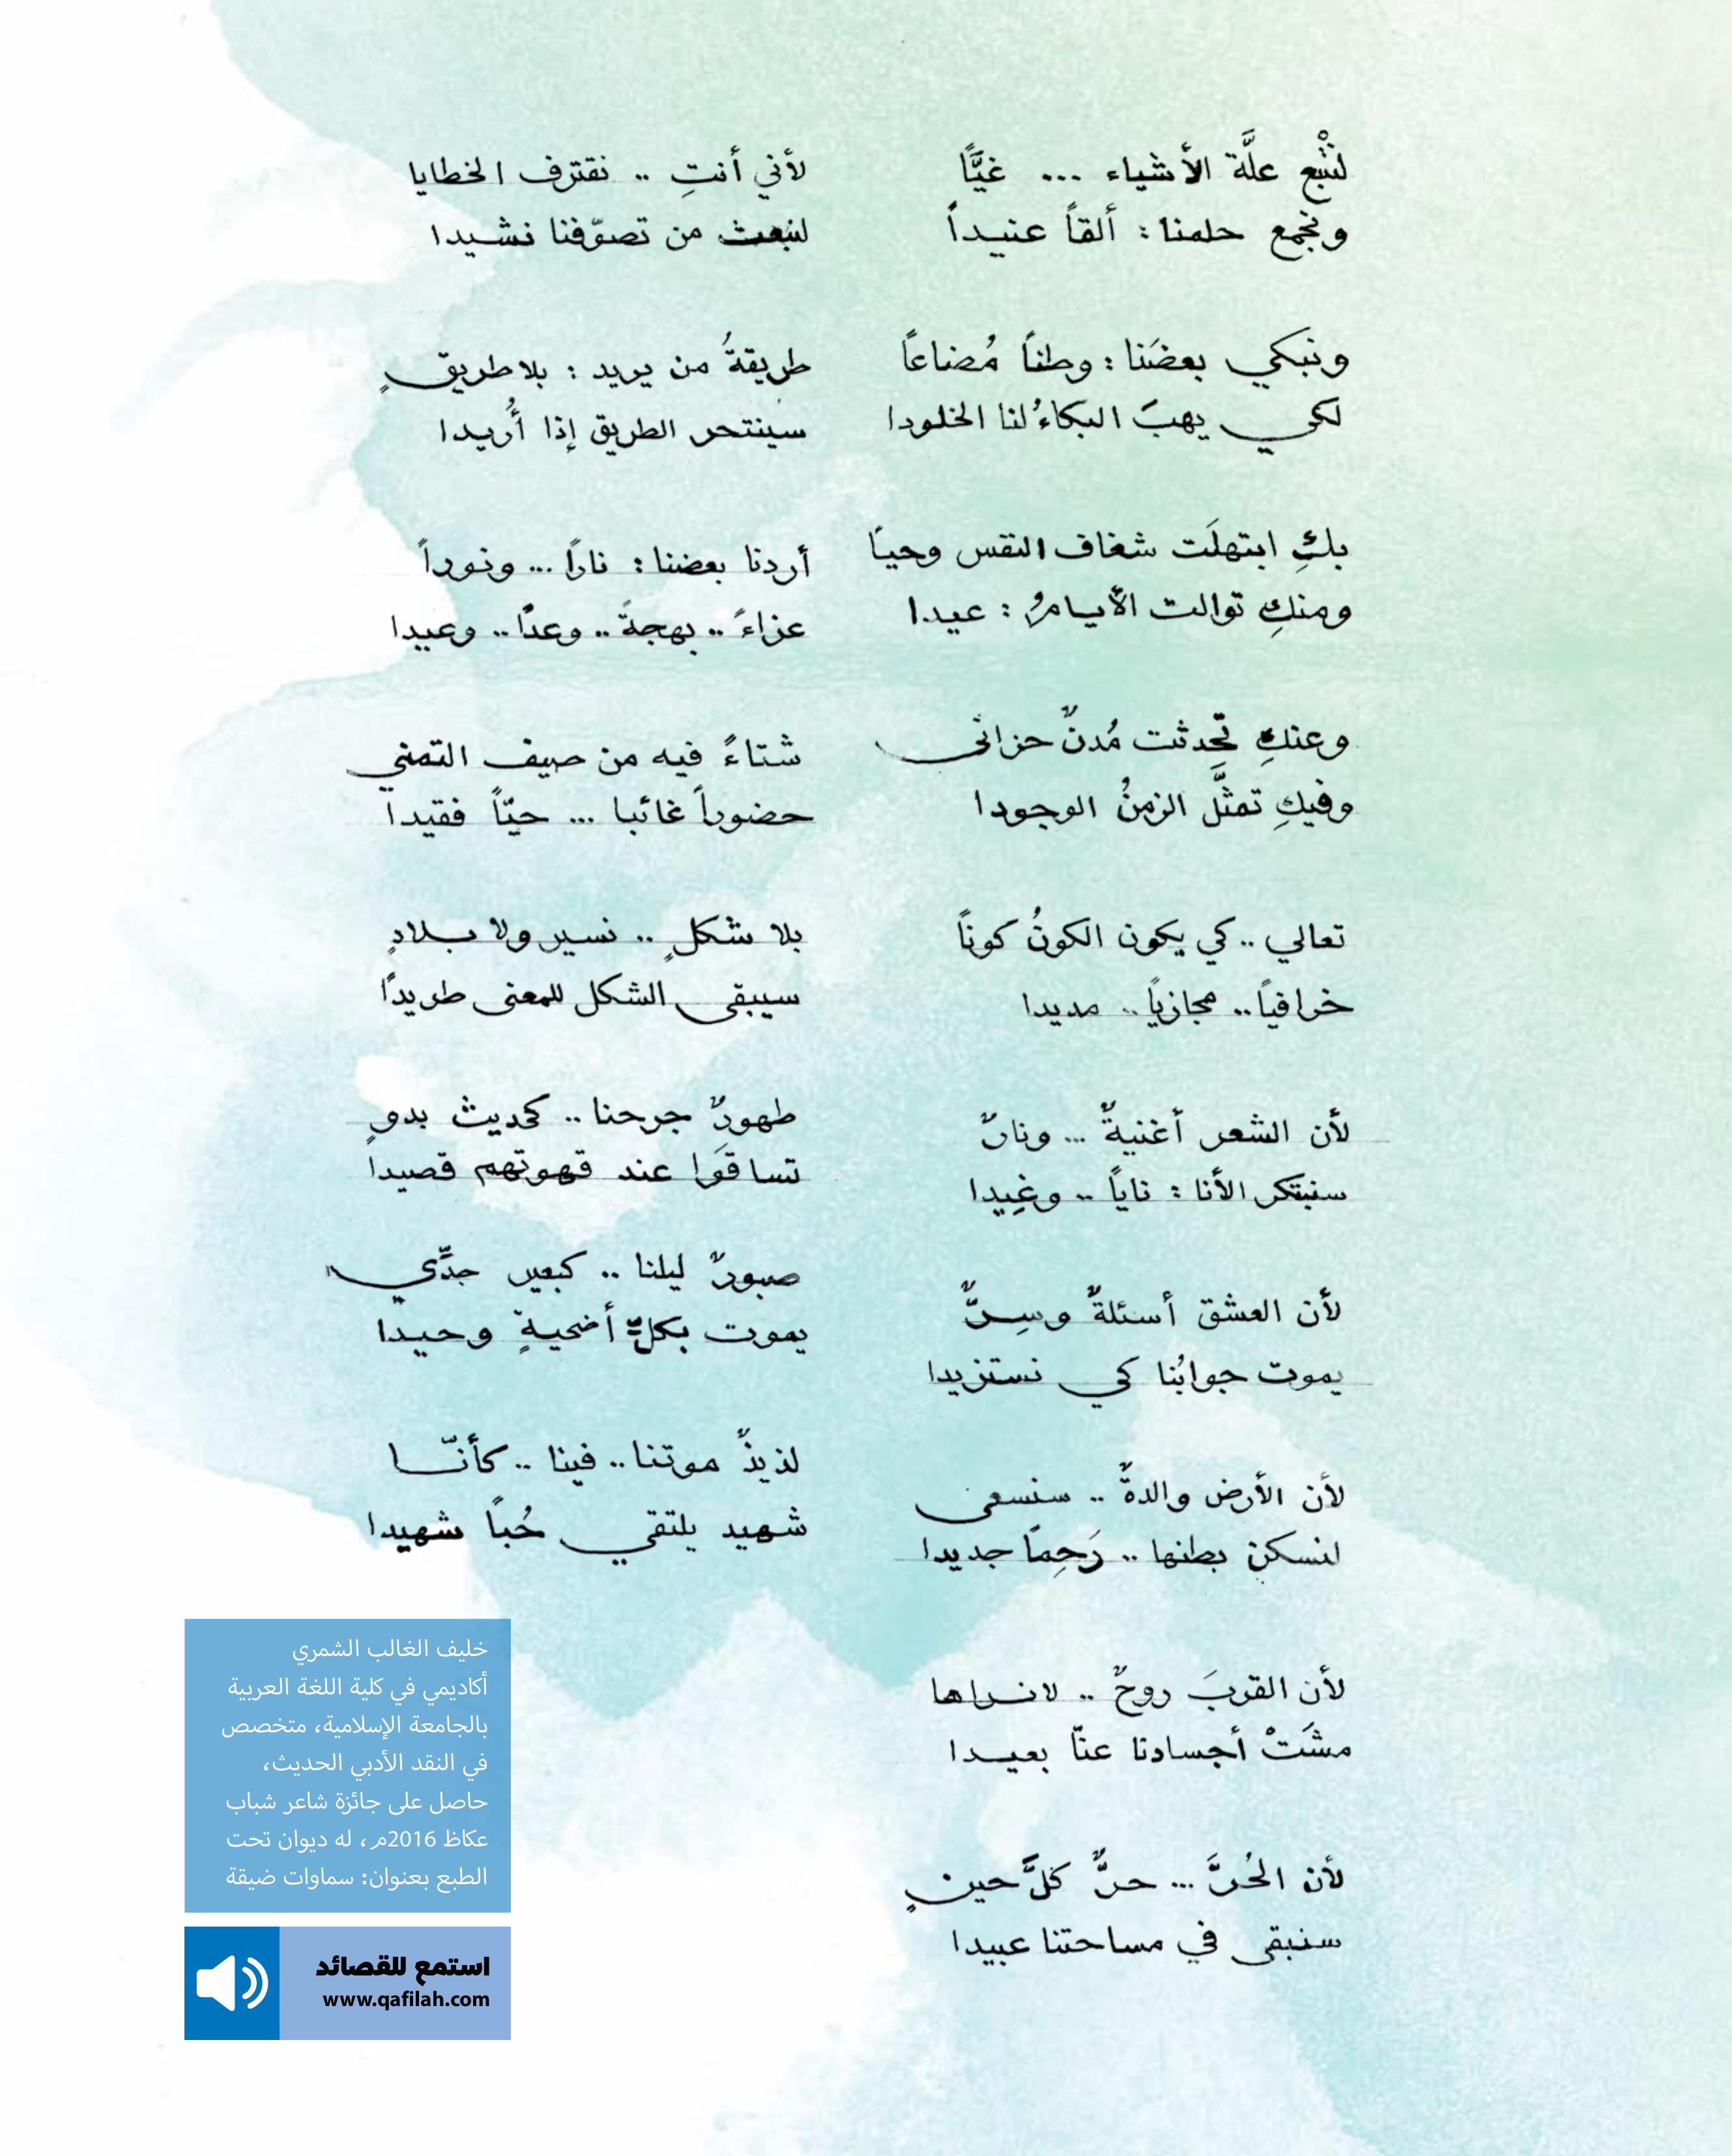 لنُتْبع علَّة الأشياء ... غيًّا
ونجمع حلمنا : ألقاً عنيداً
ونبكي بعضَنا : وطناً مُضاعاً
لكي يهبَ البكاءُ لنا الخلودا
بكِ ابتهلَت شغاف النفس وحياً
ومنكِ توالت الأيامُ : عيدا
وعنكِ تحدثت مُدنٌ حزانى
وفيكِ تمثَّل الزمنُ الوجودا
تعالي .. كي يكون الكونُ كوناً
خرافياً .. مجازياً .. مديدا
لأن الشعر أغنيةٌ ... ونارٌ
سنبتكر الأنا : ناياً .. وغِيدا
لأن العشق أسئلةٌ وسِرٌّ
يموت جوابُنا كي نستزيدا
لأن الأرض والدةٌ .. سنسعى
لنسكن بطنها .. رَحِماً جديدا
لأن القربَ روحٌ .. لا نراها
مشَتْ أجسادنا عنّا بعيدا
لأن الحُرَّ ... حرٌّ كلَّ حينٍ
سنبقى في مساحتنا عبيدا
لأني أنتِ .. نقترف الخطايا
لنبعث من تصوّفنا نشيدا
طريقةُ من يريد : بلا طريقٍ
سينتحر الطريق إذا أُريدا
أردنا بعضنا : ناراً ... ونوراً
عزاءً .. بهجةً .. وعداً .. وعيدا
شتاءً فيه من صيف التمني
حضوراً غائبا ... حيّاً فقيدا
بلا شكلٍ .. نسير ولا بلادٍ
سيبقى الشكل للمعنى طريداً
طهورٌ جرحنا .. كحديث بدوٍ
تساقَوا عند قهوتهم قصيدا
صبورٌ ليلنا .. كبعير جدِّي
يموت بكلِّ أضحيةٍ وحيدا
لذيذٌ موتنا .. فينا .. كأنّا
شهيد يلتقي حُباً شهيدا
خليف الغالب الشمري
أكاديمي في كلية اللغة العربية
بالجامعة الإسلامية، متخصص
في النقد الأدبي الحديث،
حاصل على جائزة شاعر شباب
عكاظ 2016م، له ديوان تحت
الطبع بعنوان: سماوات ضيقة
استمع للقصائد
www.qafilah.com